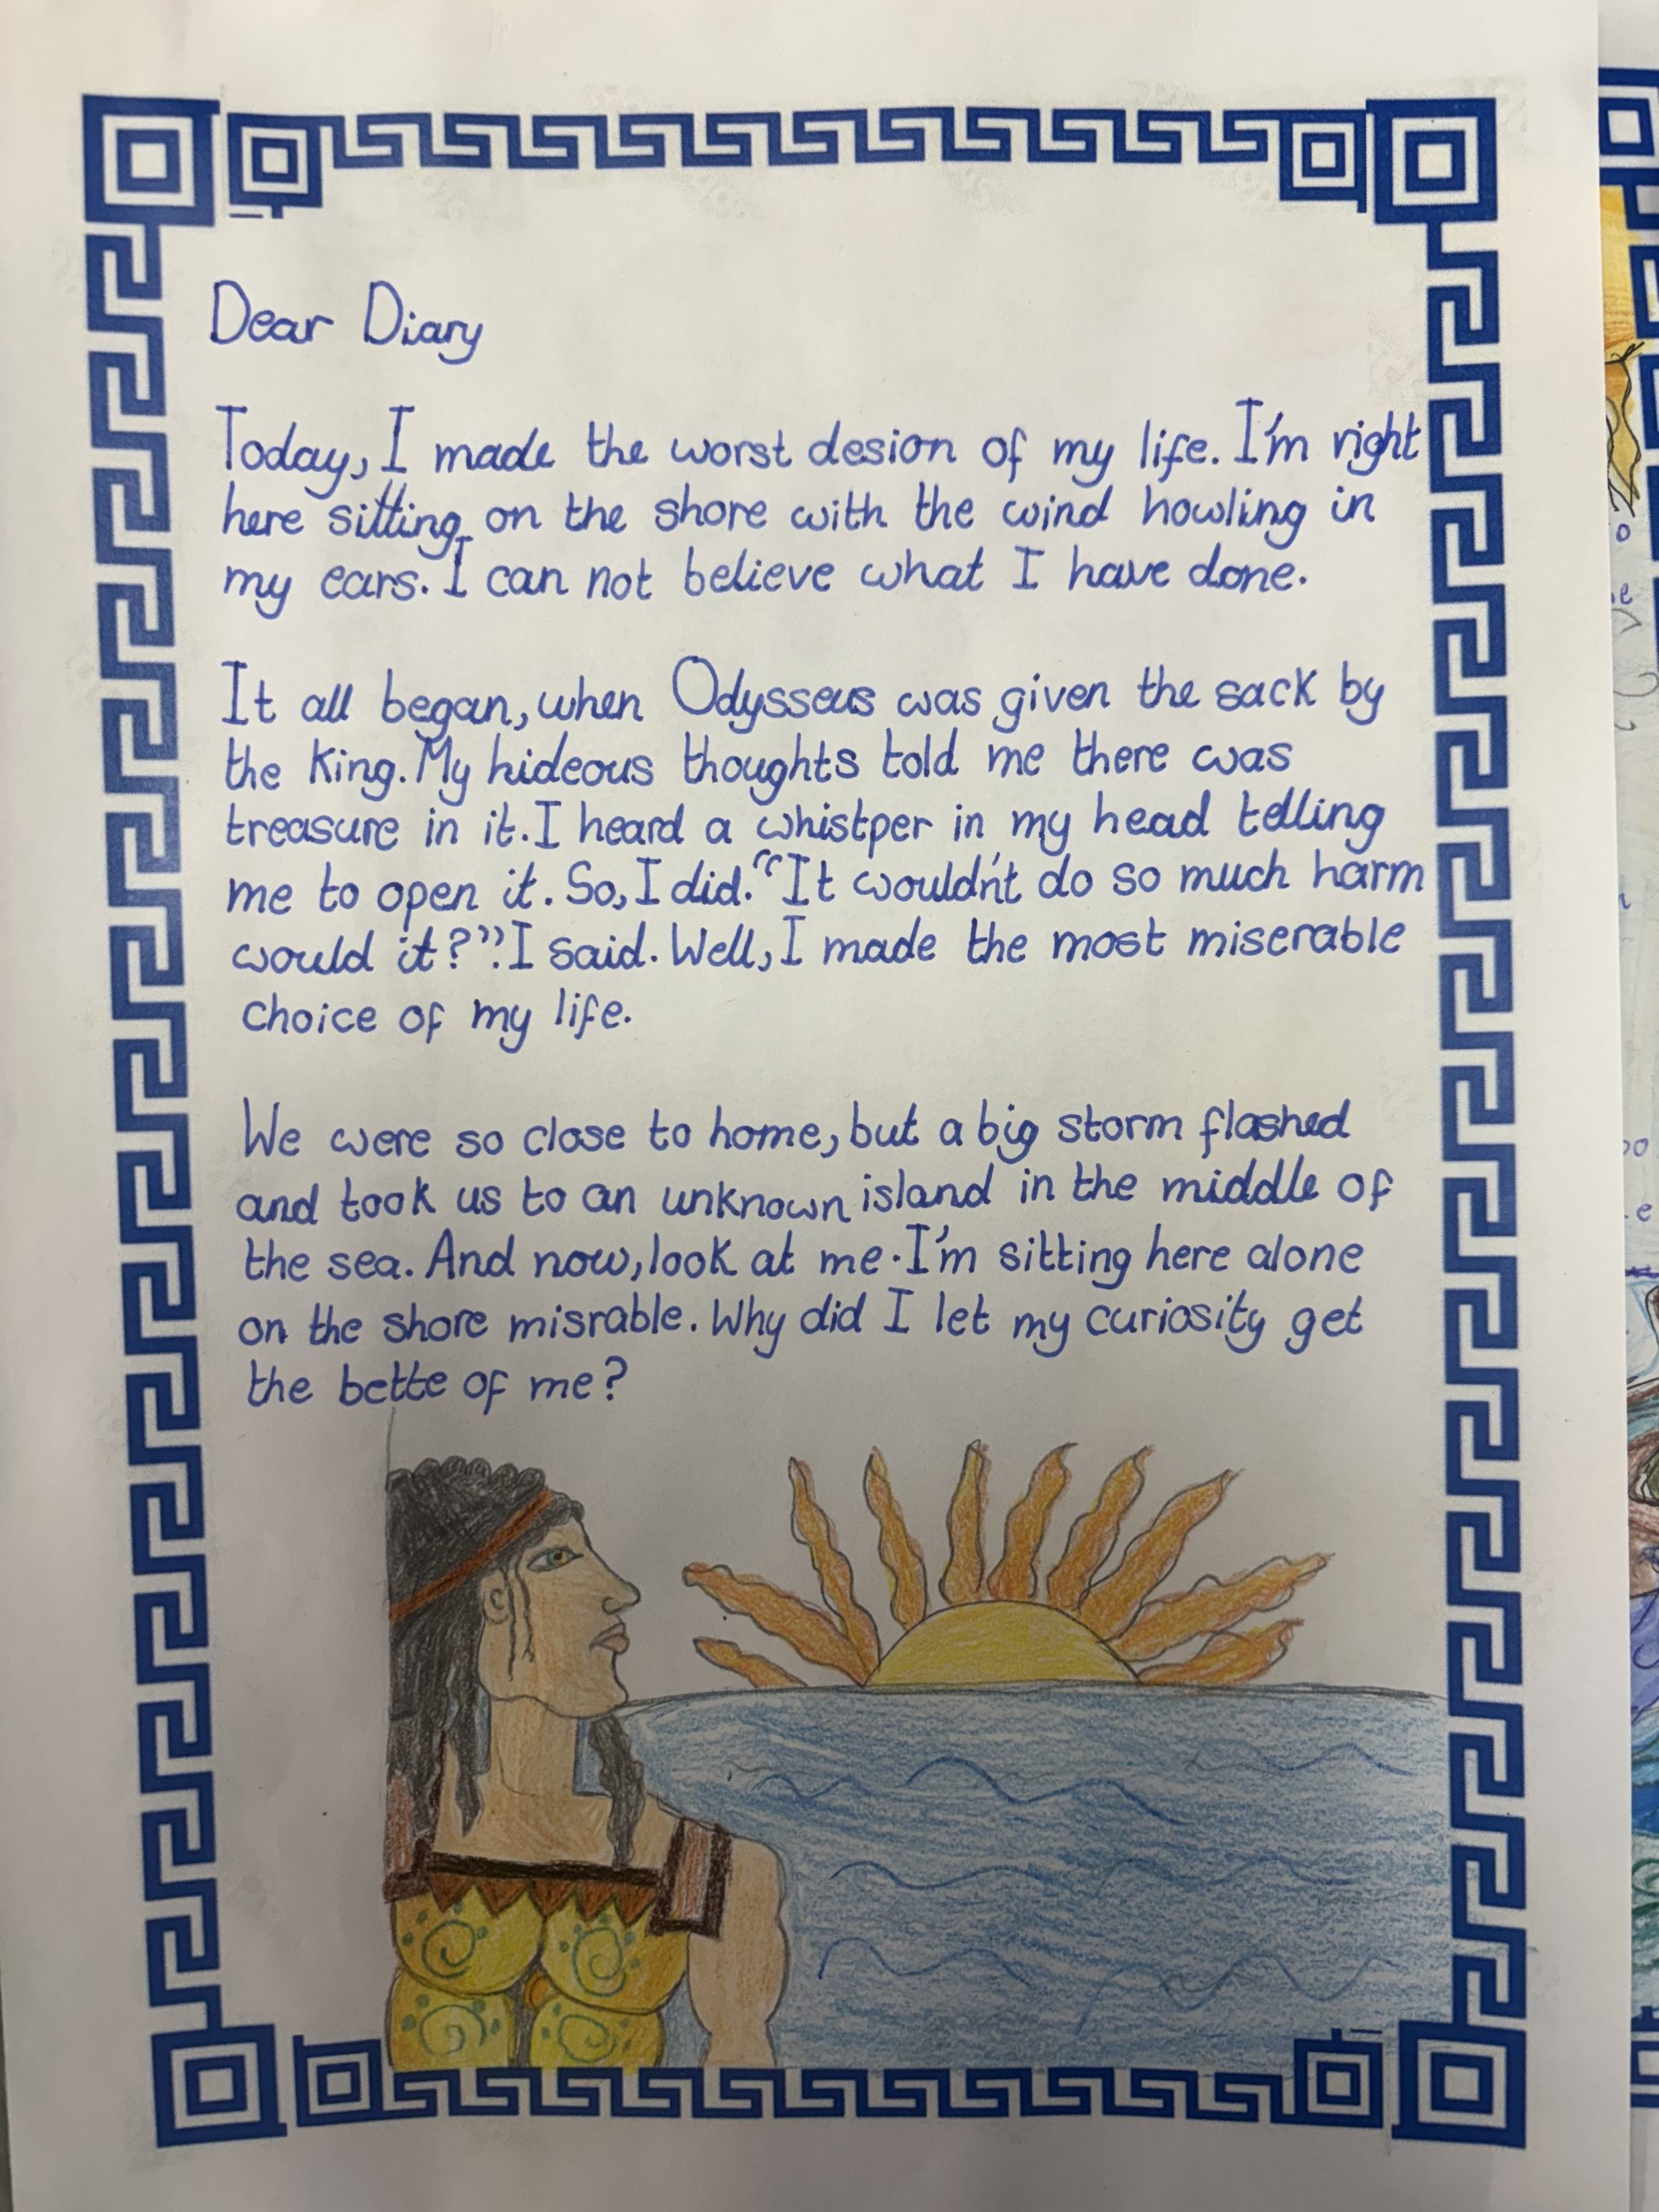 Dear Diary
Today, I made the worst desion of my life. I'm right
here sitting on the shore with the wind howling in
my ears. I can not believe what I have done.
It all began, when Odysseus was given the sack by
the King. My hideous thoughts told me there was
treasure in it. I heard a whistper in my head telling
me to open it. So, I did. "It wouldn't do so much harm
would it?". I said. Well, I made the most miserable
choice of my life.
We were so close to home, but a big storm flashed
and took us to an unknown island in the middle of
the sea. And now, look at me. I'm sitting here alone
on the shore misrable. Why did I let my curiosity get
the bette of me?